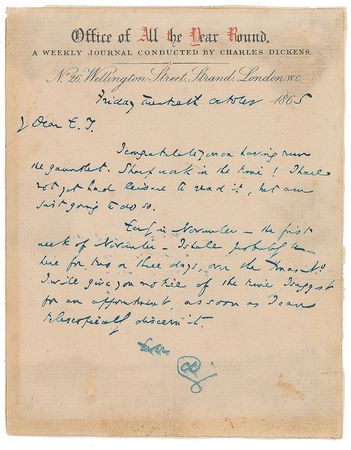 Office of All the Year Round,
A WEEKLY JOURNAL CONDUCTED BY CHARLES DICKENS.
No. 26, Wellington Street, Strand, London W.C.
Friday twentieth october 1865
My Dear E. Y.
I congratulate you on having run
the gauntlet. Sharp work in the time! I have
not yet had leisure to read it, but am
just going to do so.
Early in November – the first
week of November – I shall probably be
here for two or three days, over the Xmas No.
I will give you notice of the time I suggest
for an appointment, as soon as I can
telescopically discern it.
Ever
CD